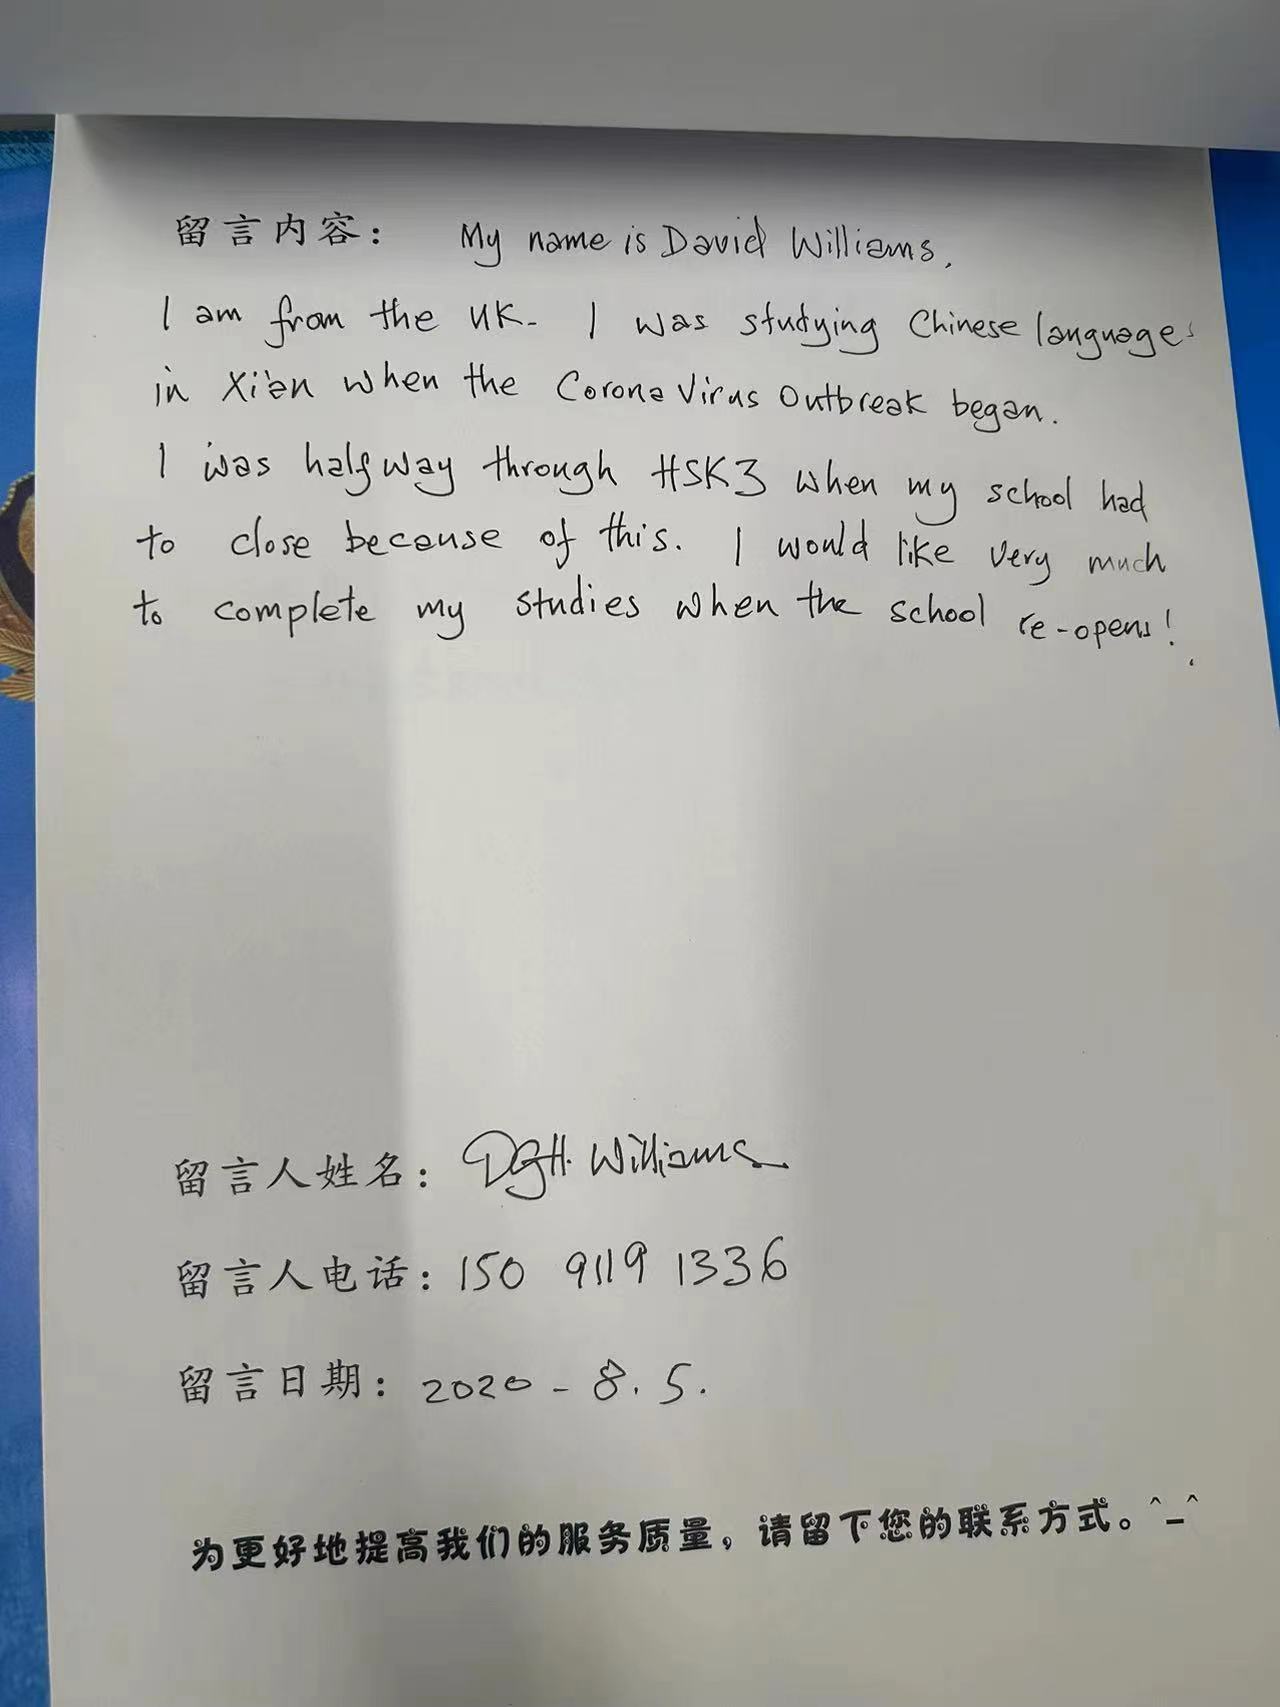 留言内容： My name is David Williams.
I am from the UK. I was studying Chinese language
in Xi'an when the Corona Virus Outbreak began.
I was halfway through HSK3 when my school had
to close because of this. I would like very much
to complete my studies when the school re-opens!
留言人姓名： DGH. Williams
留言人电话：150 9119 1336
留言日期：2020 - 8. 5.
为更好地提高我们的服务质量，请留下您的联系方式。^_^